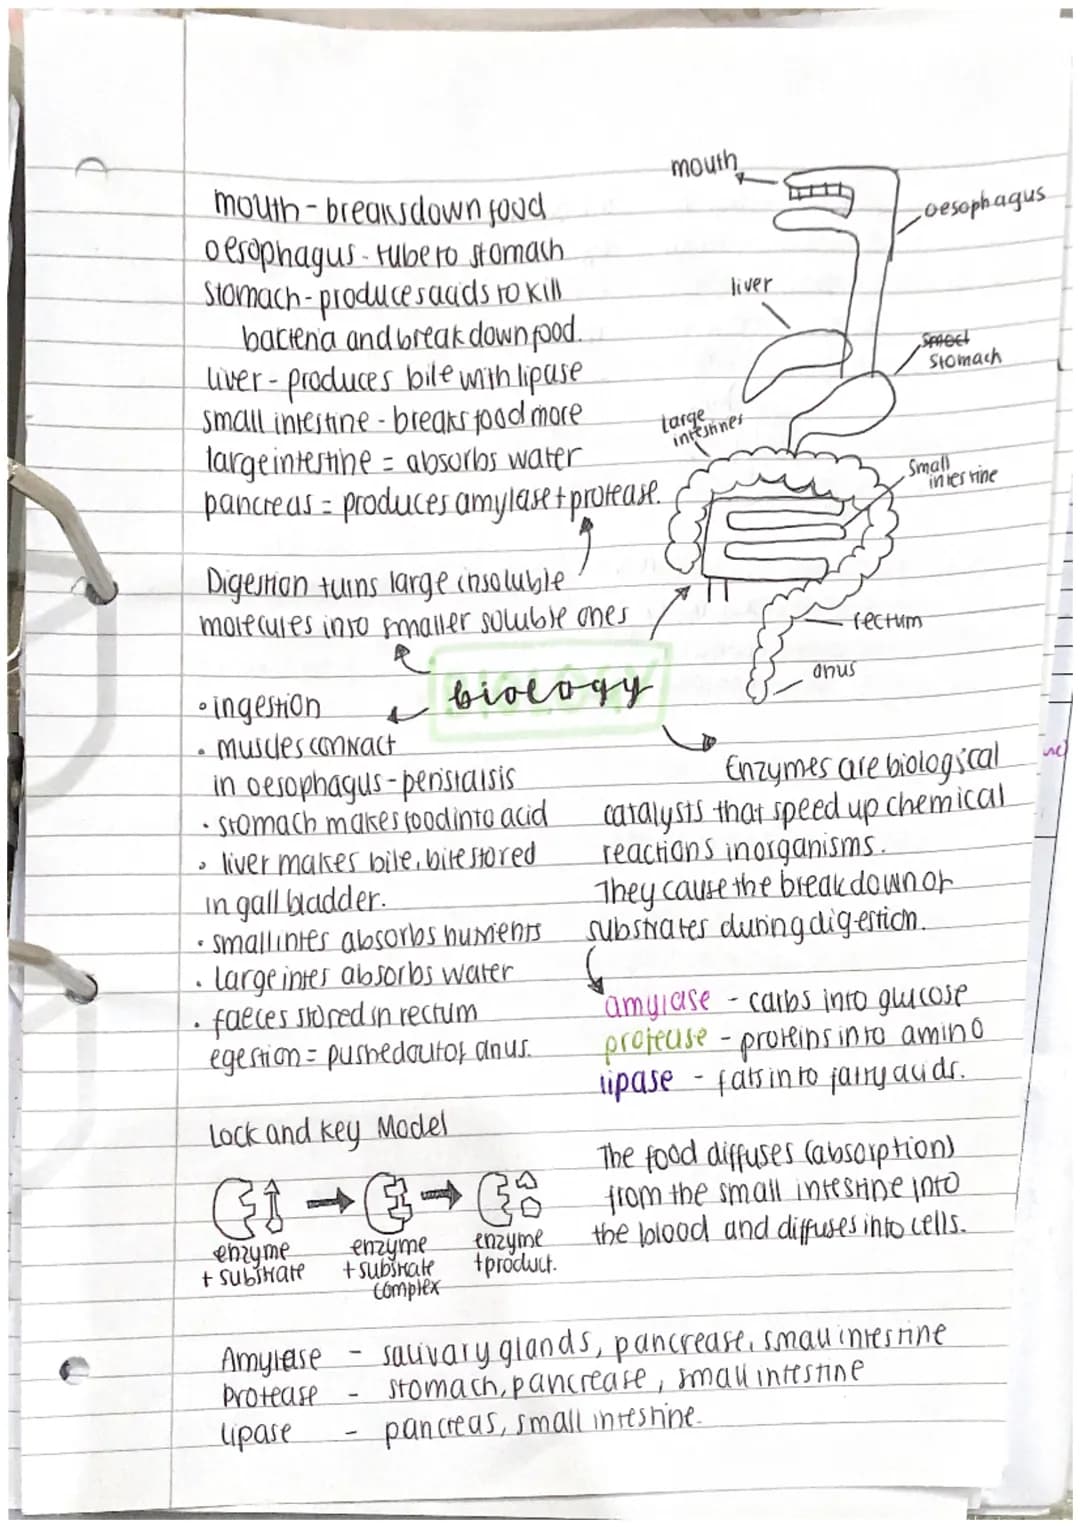 mouth - breaks down food
oesophagus - tube to stomach
stomach - produces acids to kill
bacteria and break down food.
liver - produces bile with lipase
small intestine - breaks food more
large intestine = absorbs water
pancreas = produces amylase + protease.
mouth
oesophagus
liver
stomach
large
intestines
small
intestine
rectum
anus
Digestion turns large insoluble
molecules into smaller soluble ones
biology
• ingestion
• muscles contract
in oesophagus - peristalsis
• stomach makes food into acid
• liver makes bile, bile stored
in gall bladder.
• small intes absorbs nutrients
• large intes absorbs water
• faeces stored in rectum
egestion = pushed out of anus.
Enzymes are biological
catalysts that speed up chemical
reactions in organisms.
They cause the breakdown of
substrates during digestion.
amylase - carbs into glucose
protease - proteins into amino
lipase - fats into fatty acids.
Lock and key Model
enzyme
+ substrate
enzyme
+ substrate
complex
enzyme
+ product.
The food diffuses (absorption)
from the small intestine into
the blood and diffuses into cells.
Amylase - salivary glands, pancrease, small intestine
Protease - stomach, pancrease, small intestine
Lipase - pancreas, small intestine.